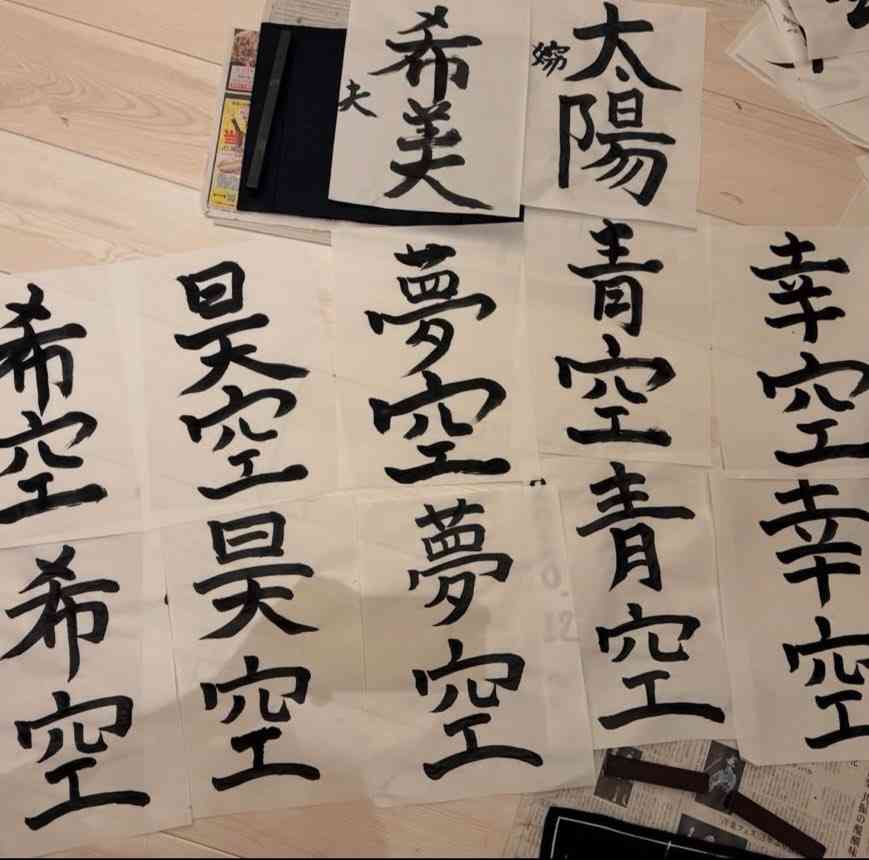 太陽
希美
夫
幸空
青空
夢空
昊空
希空
幸空
青空
夢空
昊空
希空